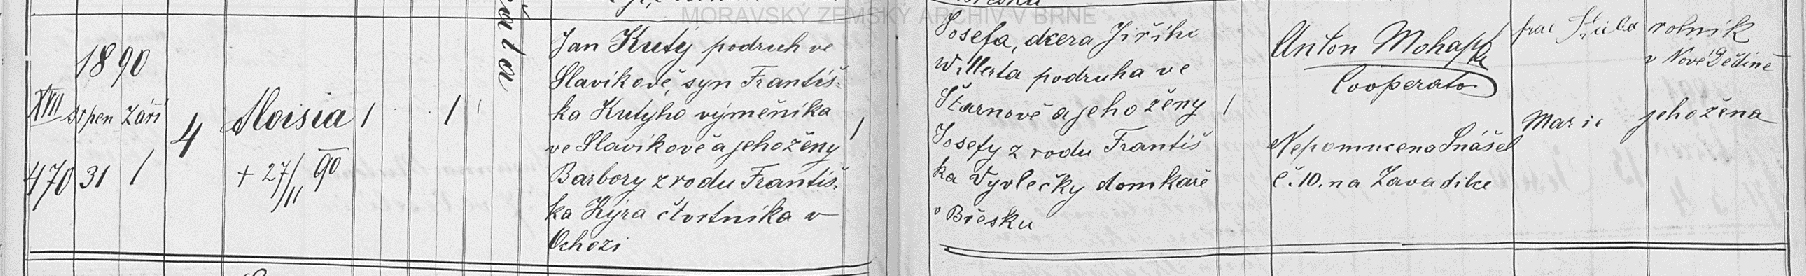 MORAVSKÝ ZEMSKÝ ARCHIV V BRNĚ
1890
XVII
srpen Září
470 31 1
4
Aloisia 1 1
+ 27/11 90
Jan Kutý podruh ve
Slavíkově, syn Františ-
ka Kutýho výměníka
ve Slavíkově a jeho ženy
Barbory z rodu Františ-
ka Kýra čtvrtníka v
Ochozi
1
Josefa, dcera Jiřího
Willerta podruha ve
Štarnově a jeho ženy
Josefy z rodu Františ
ka Vyvlečky domkaře
v Břesku
1
Anton Mohapl
Cooperator
Nepomucena Snášel
č. 10. na Zavadilce
rolník
v Nové Dědině
Marie jeho žena